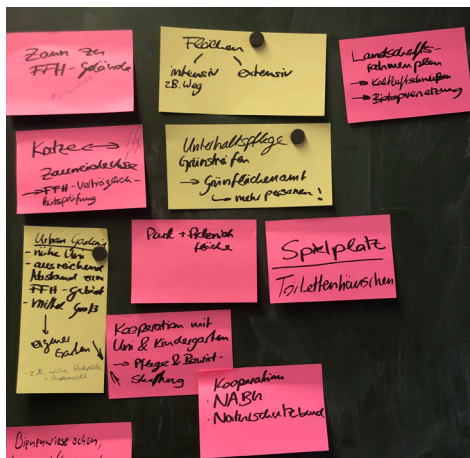 Zaun zu
FFH-Gelände
Flächen
intensiv extensiv
z.B. Weg
Landschafts-
rahmenplan
→ Kaltluftschneisen
→ Biotopvernetzung
Katze ↔
Zauneidechse
→ FFH-Verträglich-
keitsprüfung
Unterhaltspflege
Grünstreifen
→ Grünflächenamt
↳ mehr Personen!
Urban Garden
- nähe Uni
- ausreichend
Abstand zum
FFH-gebiet
- Mittel Groß
↓
eigener
Garten
- z.B.
- Supermarkt
Park + Picknick
fläche
Spielplatz
Toilettenhäuschen
Kooperation mit
Uni & Kindergarten
→ Pflege & Bewirt-
schaftung
Kooperation
· NABU
· Naturschutzbund
Bienenwiese schön,